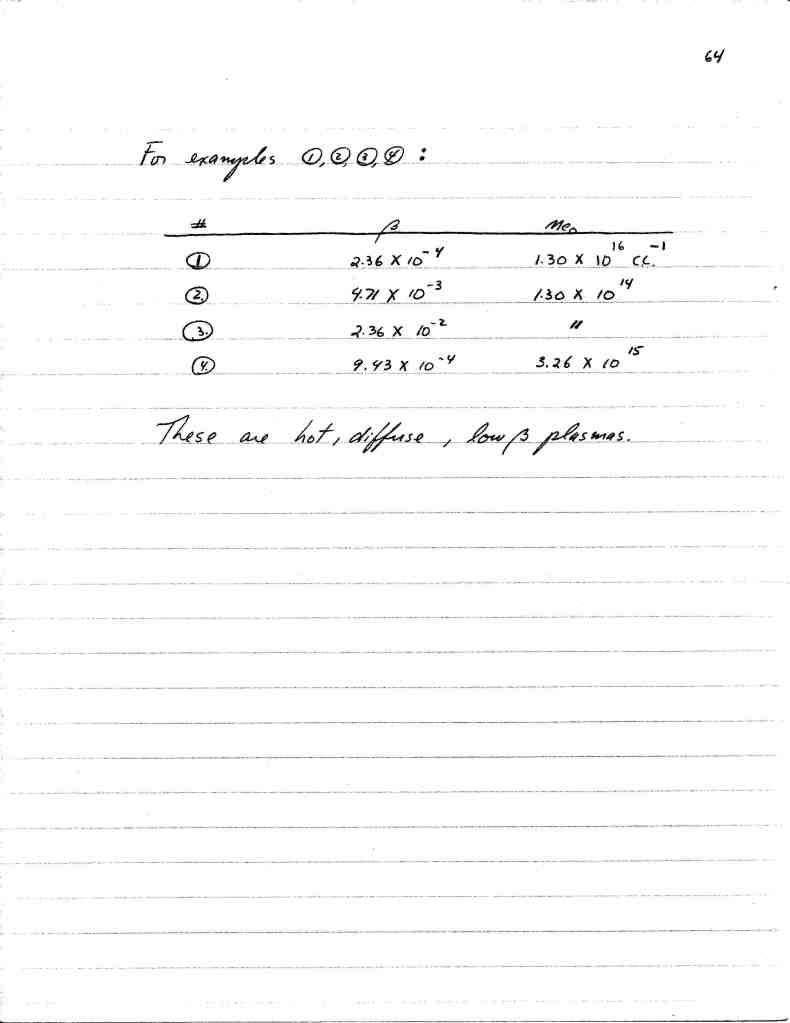 64
For examples ①, ②, ③, ④ :
# β ne₀
① 2.36 X 10⁻⁴ 1.30 X 10¹⁶ cc.⁻¹
②. 4.71 X 10⁻³ 1.30 X 10¹⁴
③. 2.36 X 10⁻² "
④. 9.43 X 10⁻⁴ 3.26 X 10¹⁵
These are hot, diffuse, low β plasmas.